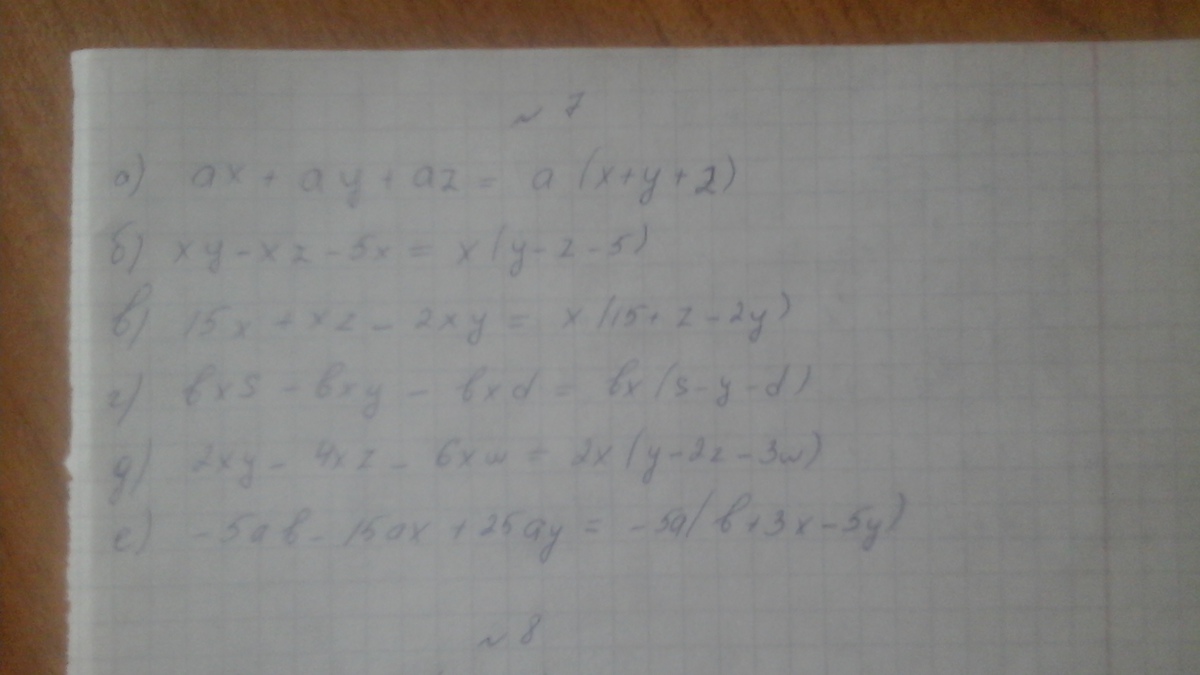 ~ 7
а) ax + ay + az = a (x+y+z)
б) xy - xz - 5x = x (y - z - 5)
в) 15x + xz - 2xy = x (15 + z - 2y)
г) bxs - bxy - bxd = bx (s - y - d)
д) 2xy - 4xz - 6xw = 2x (y - 2z - 3w)
е) -5ab - 15ax + 25ay = -5a (b + 3x - 5y)
~ 8